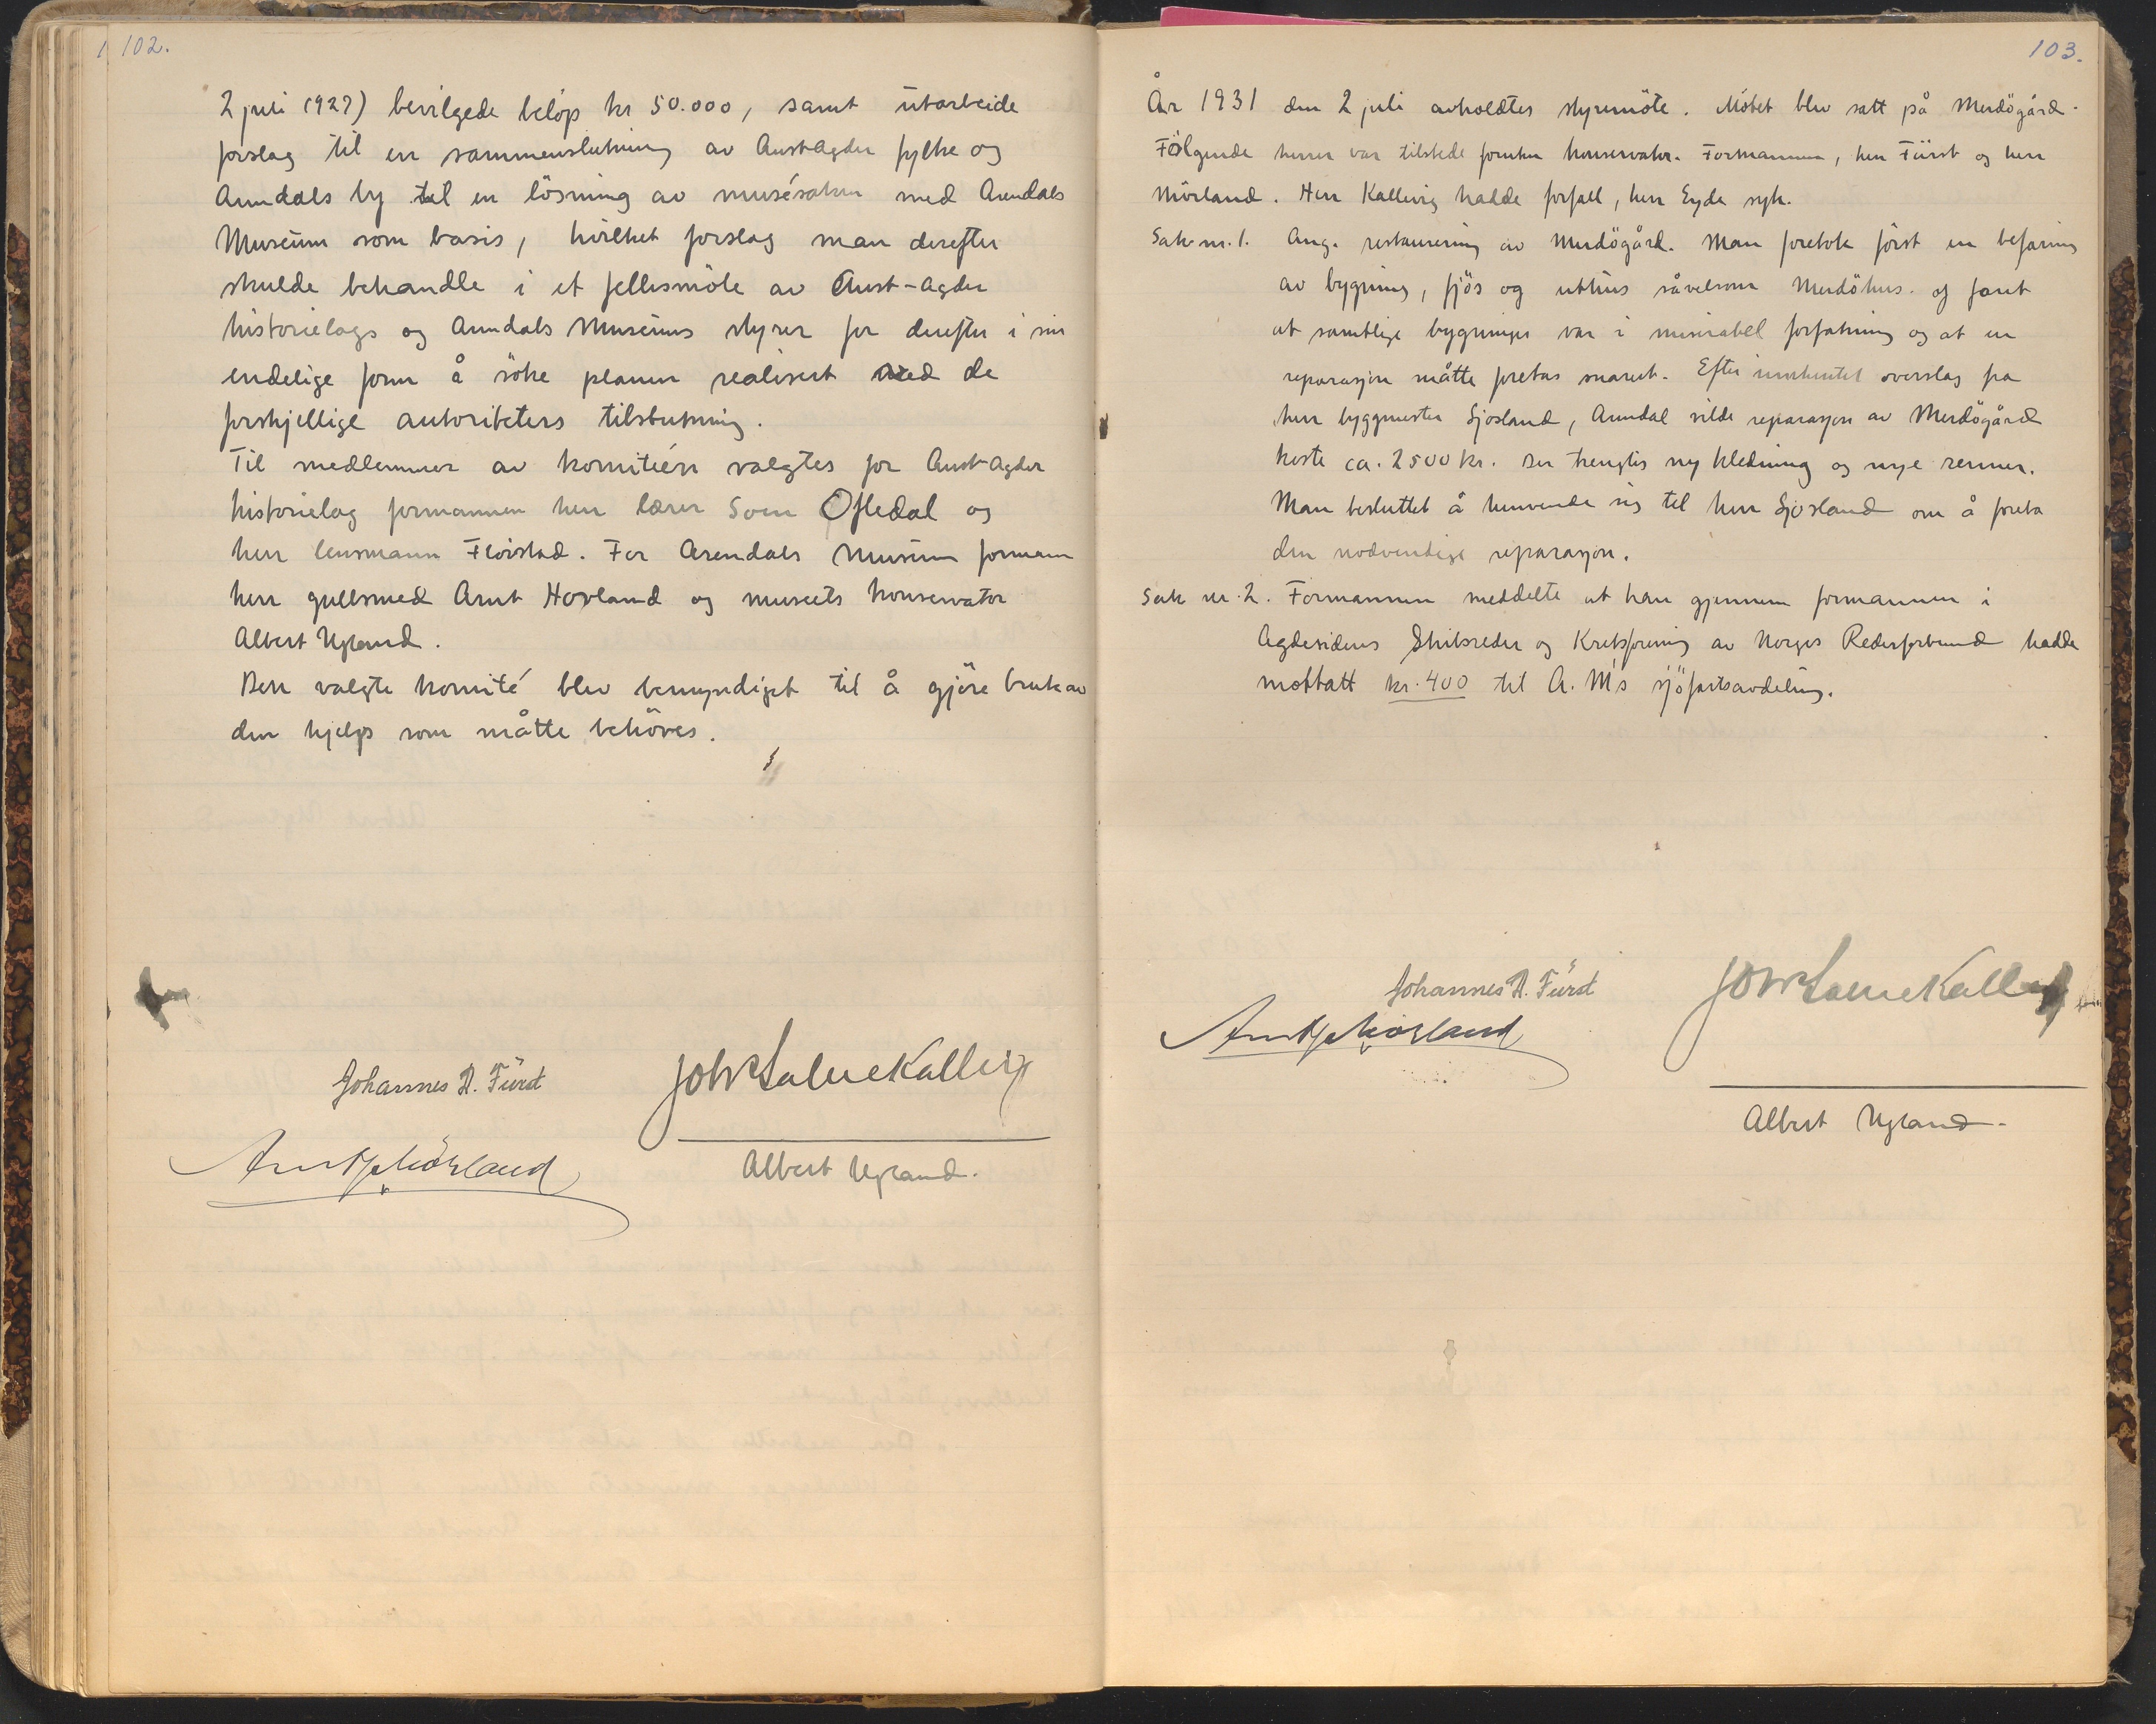 102.
2 juli 1927) bevilgede beløp kr 50.000, samt utarbeide
forslag til en sammenslutning av Aust-Agder fylke og
Arendals by til en løsning av musésaken med Arendals
Museum som basis, hvilket forslag man derefter
skulde behandle i et fellesmöte av Aust-Agder
historielags og Arendals Museums styrer for derefter i sin
endelige form å söke planen realisert med de
forskjellige autoriteters tilslutning.
Til medlemmer av komitéen valgtes for Aust-Agder
historielag formannen herr lærer Sven Oftedal og
herr lensmann Fløistad. For Arendals Museum formann
herr gullsmed Arnt Mørland og museets konservator
Albert Ugland.
Den valgte komité blev bemyndiget til å gjöre bruk av
den hjelp som måtte behöves.
Johannes A. Fürst
Joh Salve Kallevig
Arnt J. Mørland
Albert Ugland.
103.
År 1931 den 2 juli avholdtes styremöte. Mötet blev satt på Merdögård.
Fölgende herrer var tilstede foruten konservator. Formannen, herr Fürst og herr
Mörland. Herr Kallevig hadde forfall, herr Eyde syk.
Sak nr. 1. Ang. restaurering av Merdögård. Man foretok först en befaring
av bygning, fjös og uthus såvelsom Merdöhus. og fant
at samtlige bygninger var i miserabel forfatning og at en
reparasjon måtte foretas snarest. Efter innhentet overslag fra
herr byggmester Sjösland, Arendal vilde reparasjon av Merdögård
koste ca. 2500 kr. Der trengtes ny kledning og nye renner.
Man besluttet å henvende sig til herr Sjösland om å foreta
den nødvendige reparasjon.
Sak nr. 2. Formannen meddelte at han gjennem formannen i
Agdesidens Skibsreder og Kretsforening av Norges Rederforbund hadde
mottatt kr. 400 til A. M's sjöfartsavdeling.
Johannes A. Fürst
Joh Salve Kallevig
Arnt J. Mørland
Albert Ugland.